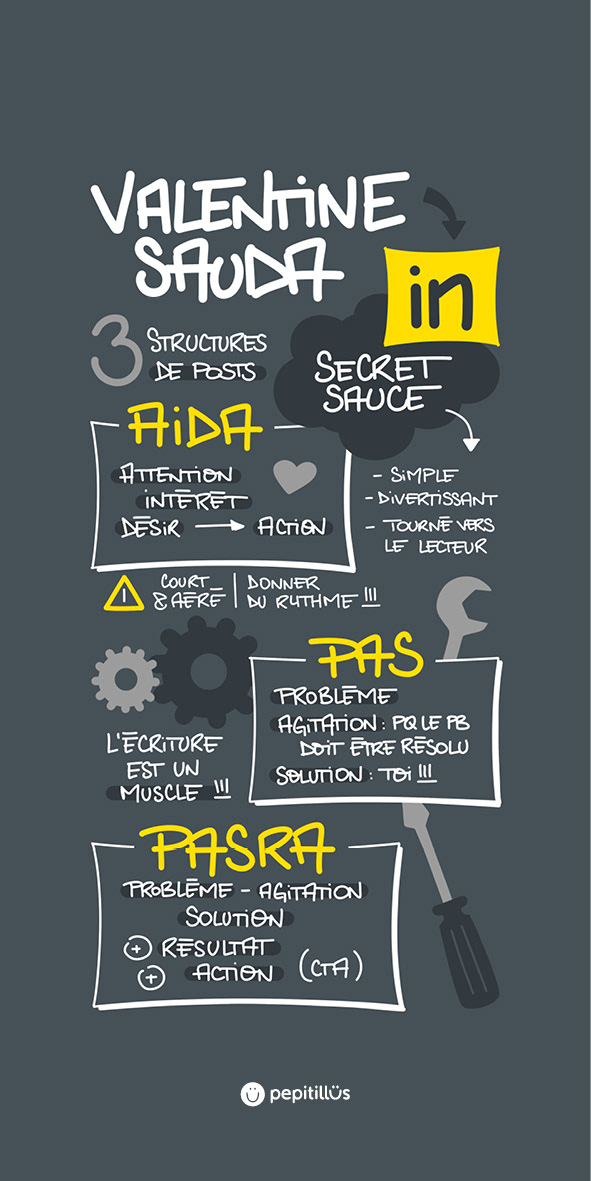 VALENTINE
SAUDA
in
3 STRUCTURES
DE POSTS
SECRET
SAUCE
- SIMPLE
- DIVERTISSANT
- TOURNÉ VERS
LE LECTEUR
AIDA
ATTENTION
INTÉRÊT
DÉSIR → ACTION
COURT
& AÉRÉ | DONNER
DU RYTHME !!!
PAS
PROBLÈME
AGITATION : PQ LE PB
DOIT ÊTRE RÉSOLU
SOLUTION : TOI !!!
L'ÉCRITURE
EST UN
MUSCLE !!!
PASRA
PROBLÈME - AGITATION
SOLUTION
+ RÉSULTAT
+ ACTION (CTA)
pepitillüs